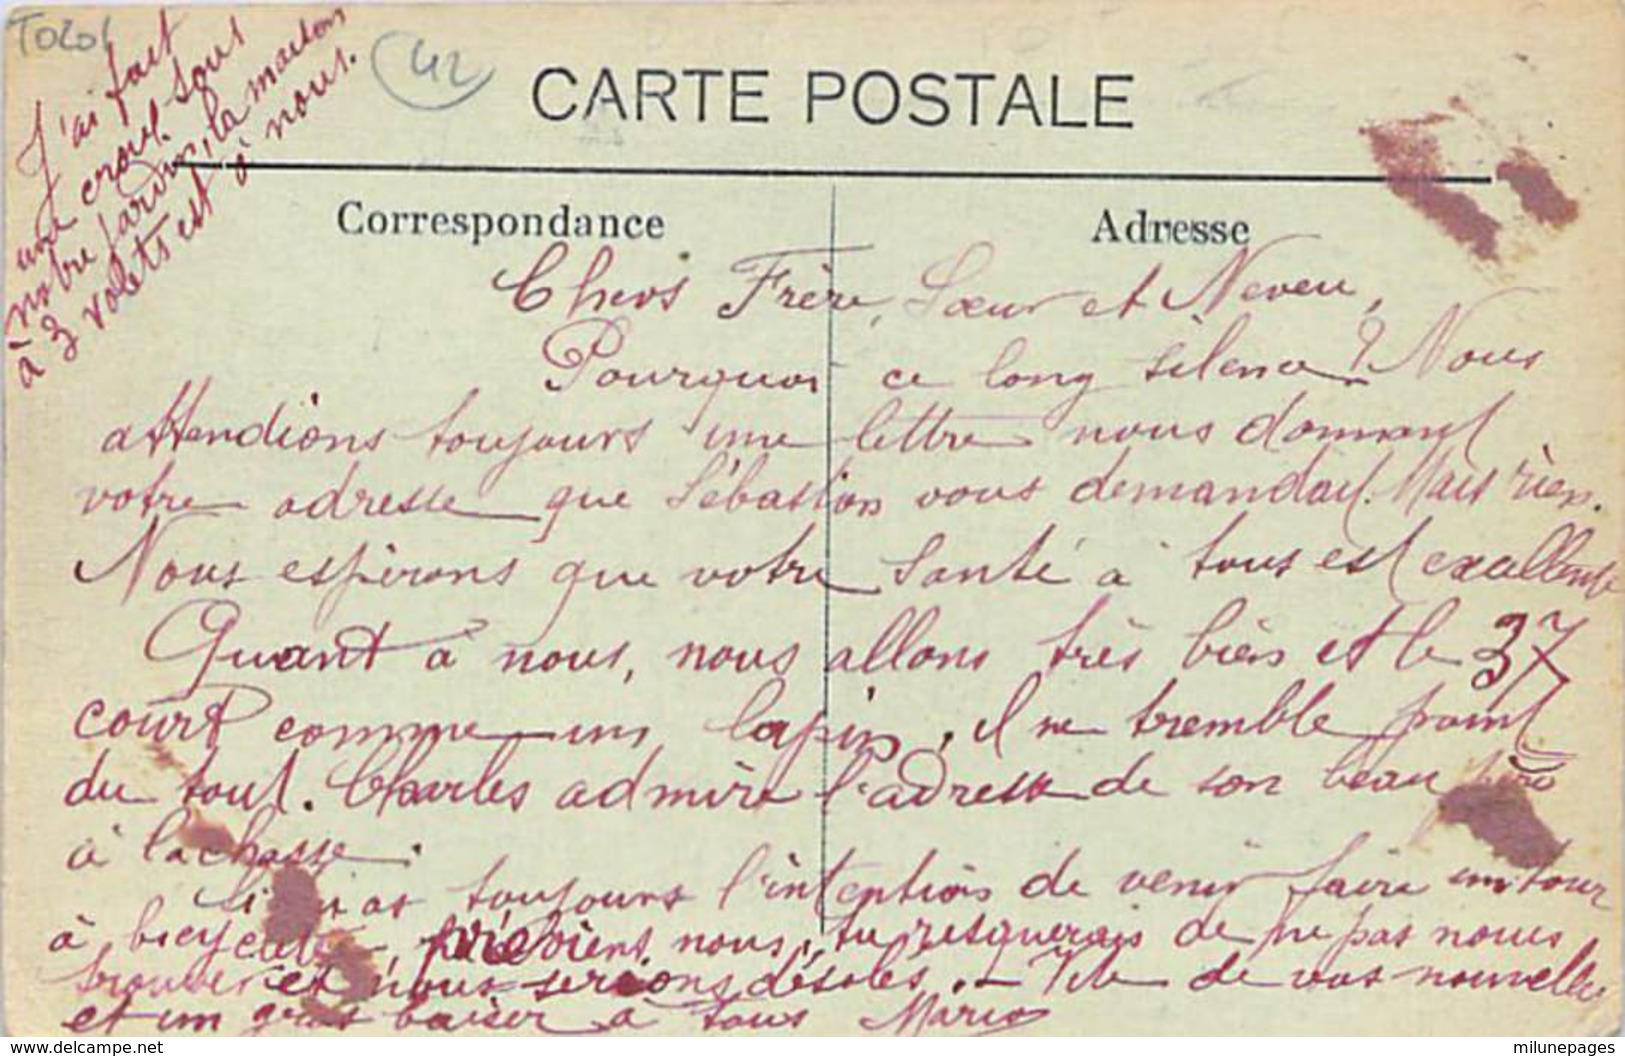 J'ai fait
une croix sous
notre jardin, la maison
à 3 volets est à nous.
42
CARTE POSTALE
Correspondance
Adresse
Chers Frère, Sœur et Neveu,
Pourquoi ce long silence? Nous
attendions toujours une lettre nous donnant
votre adresse que Sébastien vous demandait. Mais rien.
Nous espérons que votre santé à tous est excellente
Quant à nous, nous allons très bien et le 37
court comme un lapin, il ne tremble point
du tout. Charles admire l'adresse de son beau père
à la chasse.
Si as toujours l'intention de venir faire un tour
à bicyclette, préviens nous, tu risquerais de ne pas nous
trouver et nous serions désolés. - Vite de vos nouvelles
et un gros baiser à tous Marie
delcampe.net
milunepages